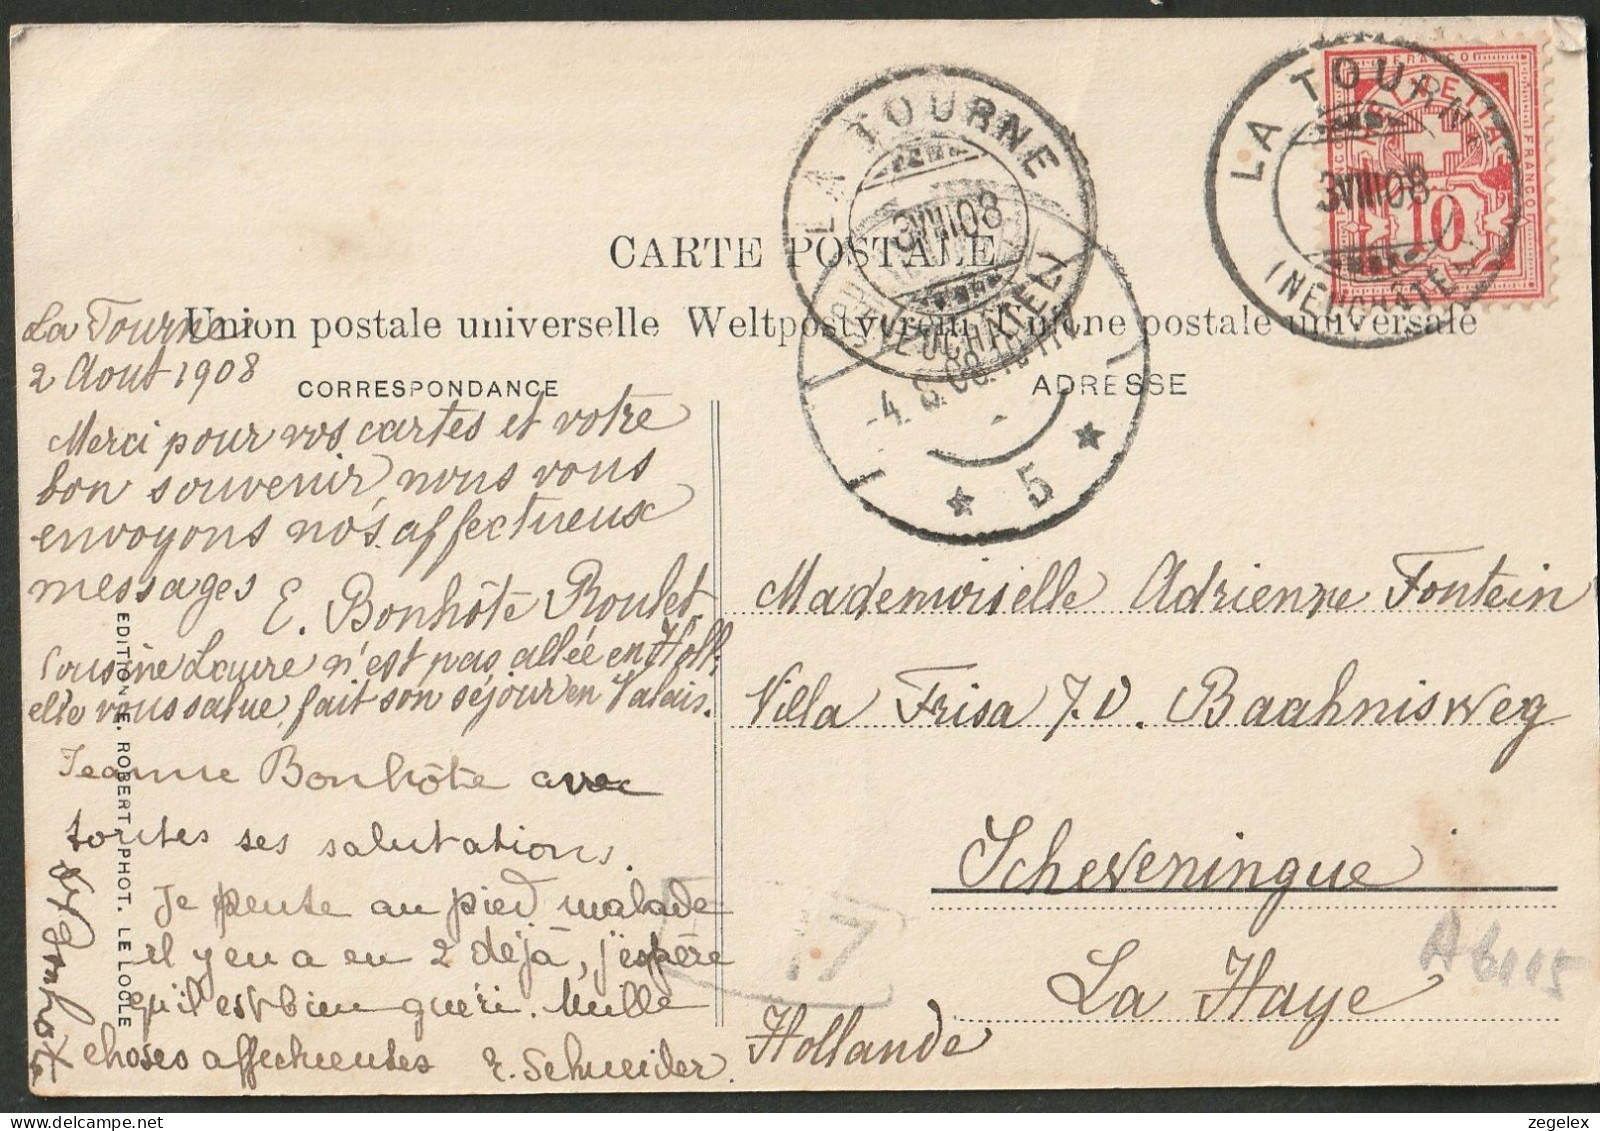 LA TOURNE
3VIII08
(NEUCHÂTEL)
FRANCO
HELVETIA
FRANCO
10
LA TOURNE
3VIII08
(NEUCHÂTEL)
-4.8.08.
5
CARTE POSTALE
Union postale universelle Weltpostverein Unione postale universale
CORRESPONDANCE
ADRESSE
La Tourne
2 Aout 1908
Merci pour vos cartes et votre
bon souvenir, nous vous
envoyons nos affectueux
messages E. Bonhôte Roulet.
Cousine Laure n'est pas allée en Holl.
elle vous salue, fait son séjour en Valais.
Jeanne Bonhôte avec
toutes ses salutations.
Je pense au pied malade
il y en a eu 2 déjà, j'espère
qu'il est bien guéri. Mille
choses affectueuses E. Schneider.
EDITION E. ROBERT, PHOT. LE LOCLE
Mademoiselle Adrienne Fontein
Villa Frisa J.V. Baahnisweg
Scheveningue
La Haye
Hollande
zegelex